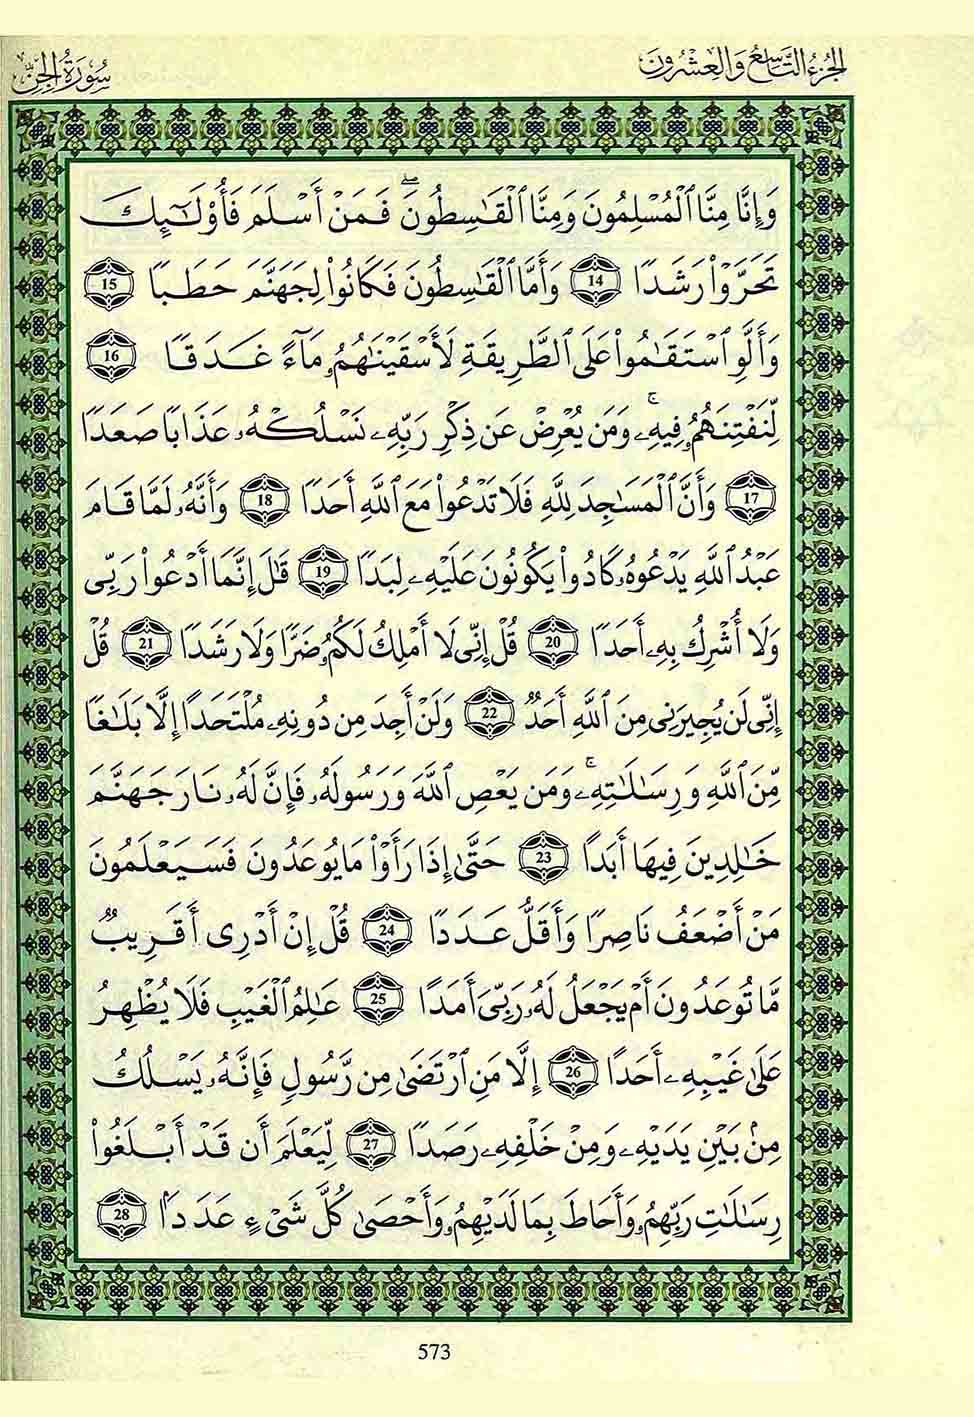 الجزء التاسع والعشرون
سورة الجن
وَإِنَّا مِنَّا ٱلْمُسْلِمُونَ وَمِنَّا ٱلْقَٰسِطُونَۖ فَمَنْ أَسْلَمَ فَأُوْلَـٰٓئِكَ
تَحَرَّوْاْ رَشَدًا 14 وَأَمَّا ٱلْقَٰسِطُونَ فَكَانُواْ لِجَهَنَّمَ حَطَبًا 15
وَأَلَّوِ ٱسْتَقَٰمُواْ عَلَى ٱلطَّرِيقَةِ لَأَسْقَيْنَٰهُمُۥ مَآءً غَدَقًا 16
لِّنَفْتِنَهُمُۥ فِيهِۦۚ وَمَن يُعْرِضْ عَن ذِكْرِ رَبِّهِۦ نَسْلُكْهُۥ عَذَابًا صَعَدًا
17 وَأَنَّ ٱلْمَسَٰجِدَ لِلَّهِ فَلَا تَدْعُواْ مَعَ ٱللَّهِ أَحَدًا 18 وَأَنَّهُۥ لَمَّا قَامَ
عَبْدُ ٱللَّهِ يَدْعُوهُۥ كَادُواْ يَكُونُونَ عَلَيْهِۦ لِبَدًا 19 قَٰلَ إِنَّمَا أَدْعُواْ رَبِّى
وَلَا أُشْرِكُ بِهِۦ أَحَدًا 20 قُلْ إِنِّى لَا أَمْلِكُ لَكُمُۥ ضَرًّا وَلَا رَشَدًا 21 قُلْ
إِنِّى لَن يُجِيرَنِى مِنَ ٱللَّهِ أَحَدٌ 22 وَلَنْ أَجِدَ مِن دُونِهِۦ مُلْتَحَدًا إِلَّا بَلَٰغًا
مِّنَ ٱللَّهِ وَرِسَٰلَٰتِهِۦۚ وَمَن يَعْصِ ٱللَّهَ وَرَسُولَهُۥ فَإِنَّ لَهُۥ نَارَ جَهَنَّمَ
خَٰلِدِينَ فِيهَا أَبَدًا 23 حَتَّىٰ إِذَا رَأَوْاْ مَا يُوعَدُونَ فَسَيَعْلَمُونَ
مَنْ أَضْعَفُ نَاصِرًا وَأَقَلُّ عَدَدًا 24 قُلْ إِنْ أَدْرِى أَقَرِيبٌ
مَّا تُوعَدُونَ أَمْ يَجْعَلُ لَهُۥ رَبِّىَ أَمَدًا 25 عَٰلِمُ ٱلْغَيْبِ فَلَا يُظْهِرُ
عَلَىٰ غَيْبِهِۦ أَحَدًا 26 إِلَّا مَنِ ٱرْتَضَىٰ مِن رَّسُولٍ فَإِنَّهُۥ يَسْلُكُ
مِنۢ بَيْنِ يَدَيْهِۦ وَمِنْ خَلْفِهِۦ رَصَدًا 27 لِّيَعْلَمَ أَن قَدْ أَبْلَغُواْ
رِسَٰلَٰتِ رَبِّهِمُۥ وَأَحَاطَ بِمَا لَدَيْهِمُۥ وَأَحْصَىٰ كُلَّ شَىْءٍ عَدَدًۢا 28
573